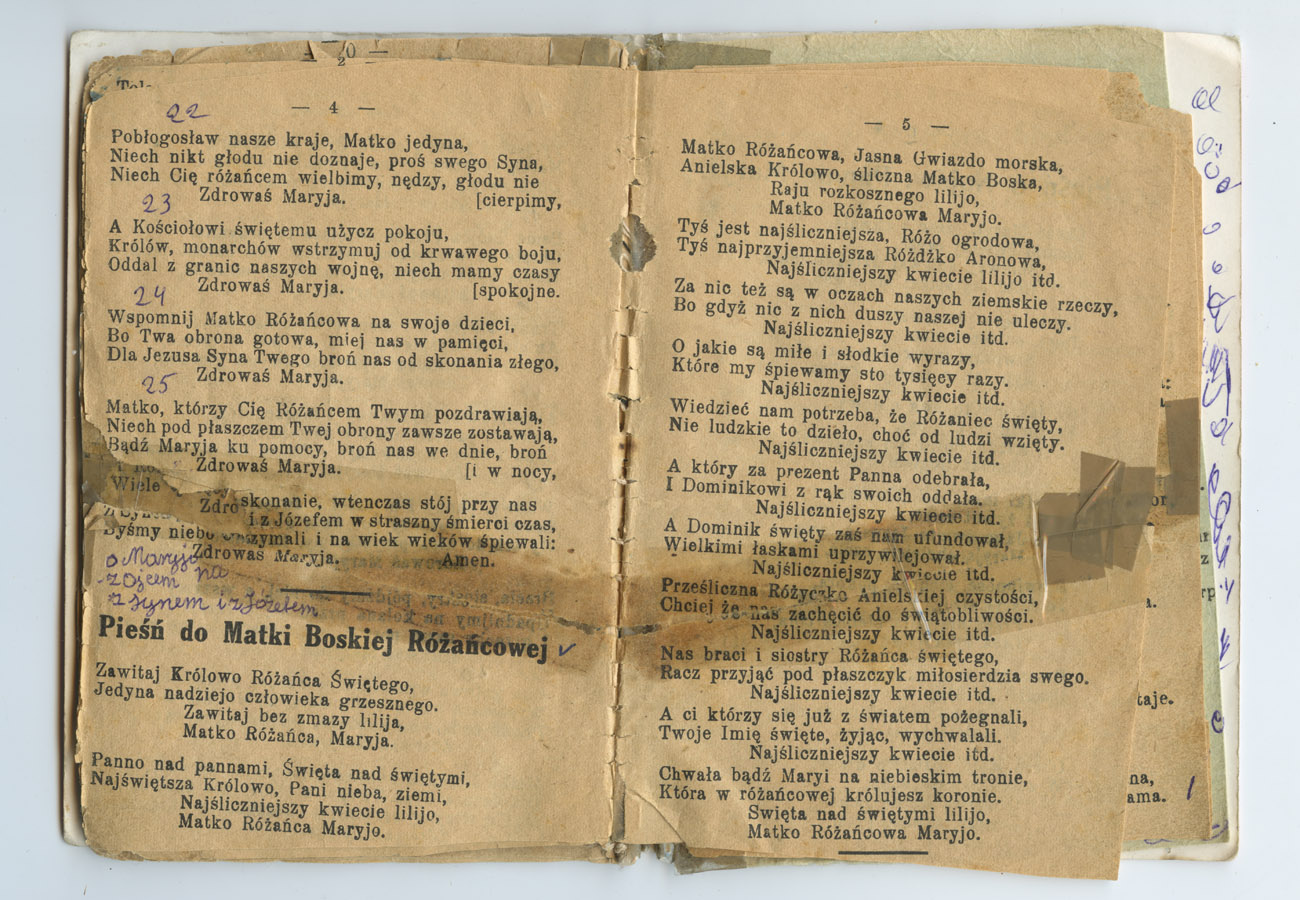 22
— 4 —
Pobłogosław nasze kraje, Matko jedyna,
Niech nikt głodu nie doznaje, proś swego Syna,
Niech Cię różańcem wielbimy, nędzy, głodu nie
Zdrowaś Maryja. [cierpimy,
23
A Kościołowi świętemu użycz pokoju,
Królów, monarchów wstrzymuj od krwawego boju,
Oddal z granic naszych wojnę, niech mamy czasy
Zdrowaś Maryja. [spokojne.
24
Wspomnij Matko Różańcowa na swoje dzieci,
Bo Twa obrona gotowa, miej nas w pamięci,
Dla Jezusa Syna Twego broń nas od skonania złego,
Zdrowaś Maryja.
25
Matko, którzy Cię Różańcem Twym pozdrawiają,
Niech pod płaszczem Twej obrony zawsze zostawają,
Bądź Maryja ku pomocy, broń nas we dnie, broń
Zdrowaś Maryja. [i w nocy,
Wiele
Zdro skonanie, wtenczas stój przy nas
i z Józefem w straszny śmierci czas,
Byśmy niebo otrzymali i na wiek wieków śpiewali:
Zdrowaś Maryja. Amen.
o Maryjo
z Ojcem na
z synem i z Józefem
Pieśń do Matki Boskiej Różańcowej
Zawitaj Królowo Różańca Świętego,
Jedyna nadziejo człowieka grzesznego.
Zawitaj bez zmazy lilija,
Matko Różańca, Maryja.
Panno nad pannami, Święta nad świętymi,
Najświętsza Królowo, Pani nieba, ziemi,
Najśliczniejszy kwiecie lilijo,
Matko Różańca Maryjo.
— 5 —
Matko Różańcowa, Jasna Gwiazdo morska,
Anielska Królowo, śliczna Matko Boska,
Raju rozkosznego lilijo,
Matko Różańcowa Maryjo.
Tyś jest najśliczniejsza, Różo ogrodowa,
Tyś najprzyjemniejsza Różdżko Aronowa,
Najśliczniejszy kwiecie lilijo itd.
Za nic też są w oczach naszych ziemskie rzeczy,
Bo gdyż nic z nich duszy naszej nie uleczy.
Najśliczniejszy kwiecie itd.
O jakie są miłe i słodkie wyrazy,
Które my śpiewamy sto tysięcy razy.
Najśliczniejszy kwiecie itd.
Wiedzieć nam potrzeba, że Różaniec święty,
Nie ludzkie to dzieło, choć od ludzi wzięty.
Najśliczniejszy kwiecie itd.
A który za prezent Panna odebrała,
I Dominikowi z rąk swoich oddała.
Najśliczniejszy kwiecie itd.
A Dominik święty zaś nam ufundował,
Wielkimi łaskami uprzywilejował.
Najśliczniejszy kwiecie itd.
Prześliczna Różyczko Anielskiej czystości,
Chciej że nas zachęcić do świątobliwości.
Najśliczniejszy kwiecie itd.
Nas braci i siostry Różańca świętego,
Racz przyjąć pod płaszczyk miłosierdzia swego.
Najśliczniejszy kwiecie itd.
A ci którzy się już z światem pożegnali,
Twoje Imię święte, żyjąc, wychwalali.
Najśliczniejszy kwiecie itd.
Chwała bądź Maryi na niebieskim tronie,
Która w różańcowej królujesz koronie.
Swięta nad świętymi lilijo,
Matko Różańcowa Maryjo.